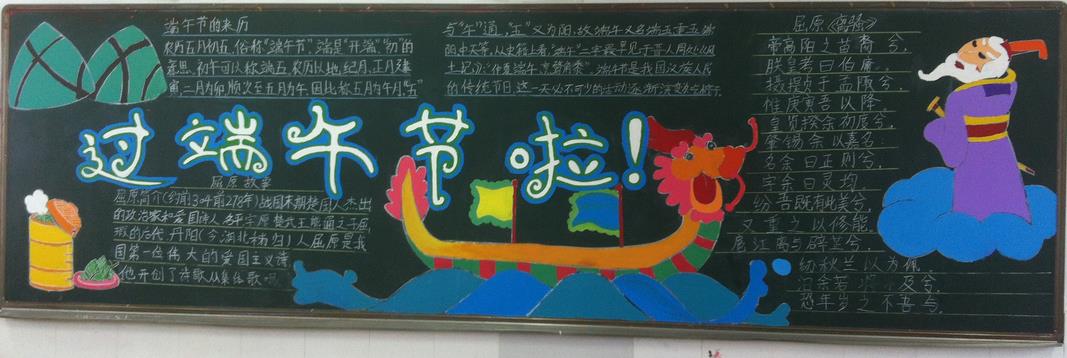 端午节的来历
农历五月初五,俗称"端午节",端是"开端"、"初"的
意思,初午可以称端五,农历以地纪月,正月建
寅,二月为卯,顺次至五月为午,因此称五月为午月,"五"
与"午"通,"五"又为阳,故端午又名端五重五端
阳中天等,从史籍上看,"端午"二字最早见于晋人周处风
土记》:"仲夏端午,烹鹜角黍"。端午节是我国汉族人民
的传统节日,这一天必不可少的活动逐渐演变
过端午节啦!
屈原故事
屈原简介(约前340前278年)战国末期楚国人杰出
的政治家和爱国诗人,名平字原,楚武王熊通之子屈
瑕的后代,丹阳(今湖北秭归)人屈原是我
国第一位伟大的爱国主义诗
他开创了诗歌从集体歌
屈原《离骚》
帝高阳之苗裔兮,
朕皇考曰伯庸。
摄提贞于孟陬兮,
惟庚寅吾以降。
皇览揆余初度兮,
肇锡余以嘉名:
名余曰正则兮,
字余曰灵均。
纷吾既有此美兮,
又重之以修能。
扈江离与辟芷兮,
纫秋兰以为佩
汩余若将不及兮,
恐年岁之不吾与。